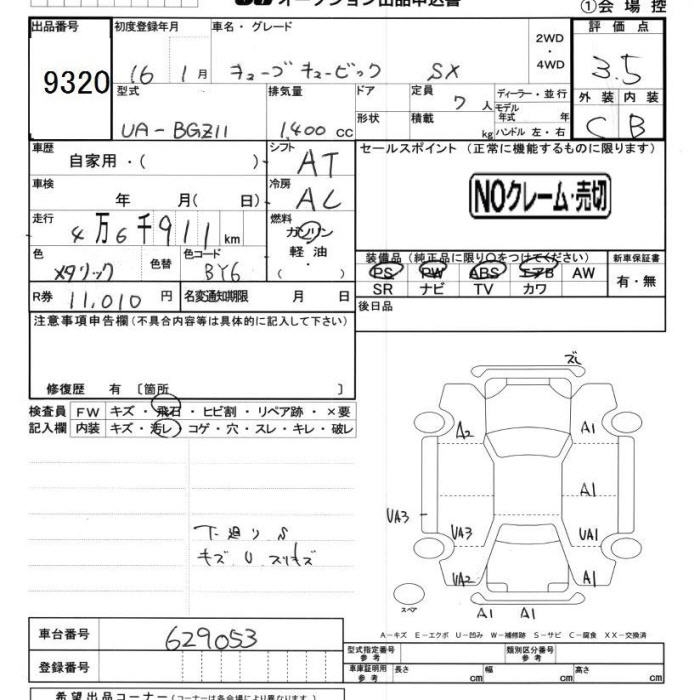 オークション出品申込書
①会場控
出品番号
初度登録年月
車名・グレード
2WD
・
4WD
評価点
9320
16 1月
キューブキュービック
SX
3.5
型式
排気量
ドア
定員 7 人
ディーラー・並行
モデル
年式 年
外装
内装
UA-BGZ11
1,400 cc
形状
積載 kg
ハンドル 左・右
C
B
車歴
自家用・( )
シフト
AT
セールスポイント (正常に機能するものに限ります)
車検
年 月( 日)
冷房
AC
NOクレーム・売切
走行
4万6千911km
燃料
ガソリン
軽油
( ・ )
色
メタリック
色替
色コード
BY6
装備品 (純正品に限り○をつけてください)
新車保証書
PS PW ABS エアB AW
SR ナビ TV カワ
有・無
R券 11,010 円
名変通知期限 月 日
後日品
注意事項申告欄 (不具合内容等は具体的に記入して下さい)
修復歴 有 〔箇所 〕
検査員
記入欄
FW キズ・飛石・ヒビ割・リペア跡・×要
内装 キズ・汚レ・コゲ・穴・スレ・キレ・破レ
A2
A1
A1
UA3
UA3
UA1
UA2
A1
スペア
A1
A1
下廻りS
キズ U スリキズ
A-キズ E-エクボ U-凹み W-補修跡 S-サビ C-腐食 XX-交換済
車台番号
629053
型式指定番号
参考
類別区分番号
参考
登録番号
車庫証明用
参考
長さ cm
幅 cm
高さ cm
希望出品コーナー (コーナーは各会場により異なります。)